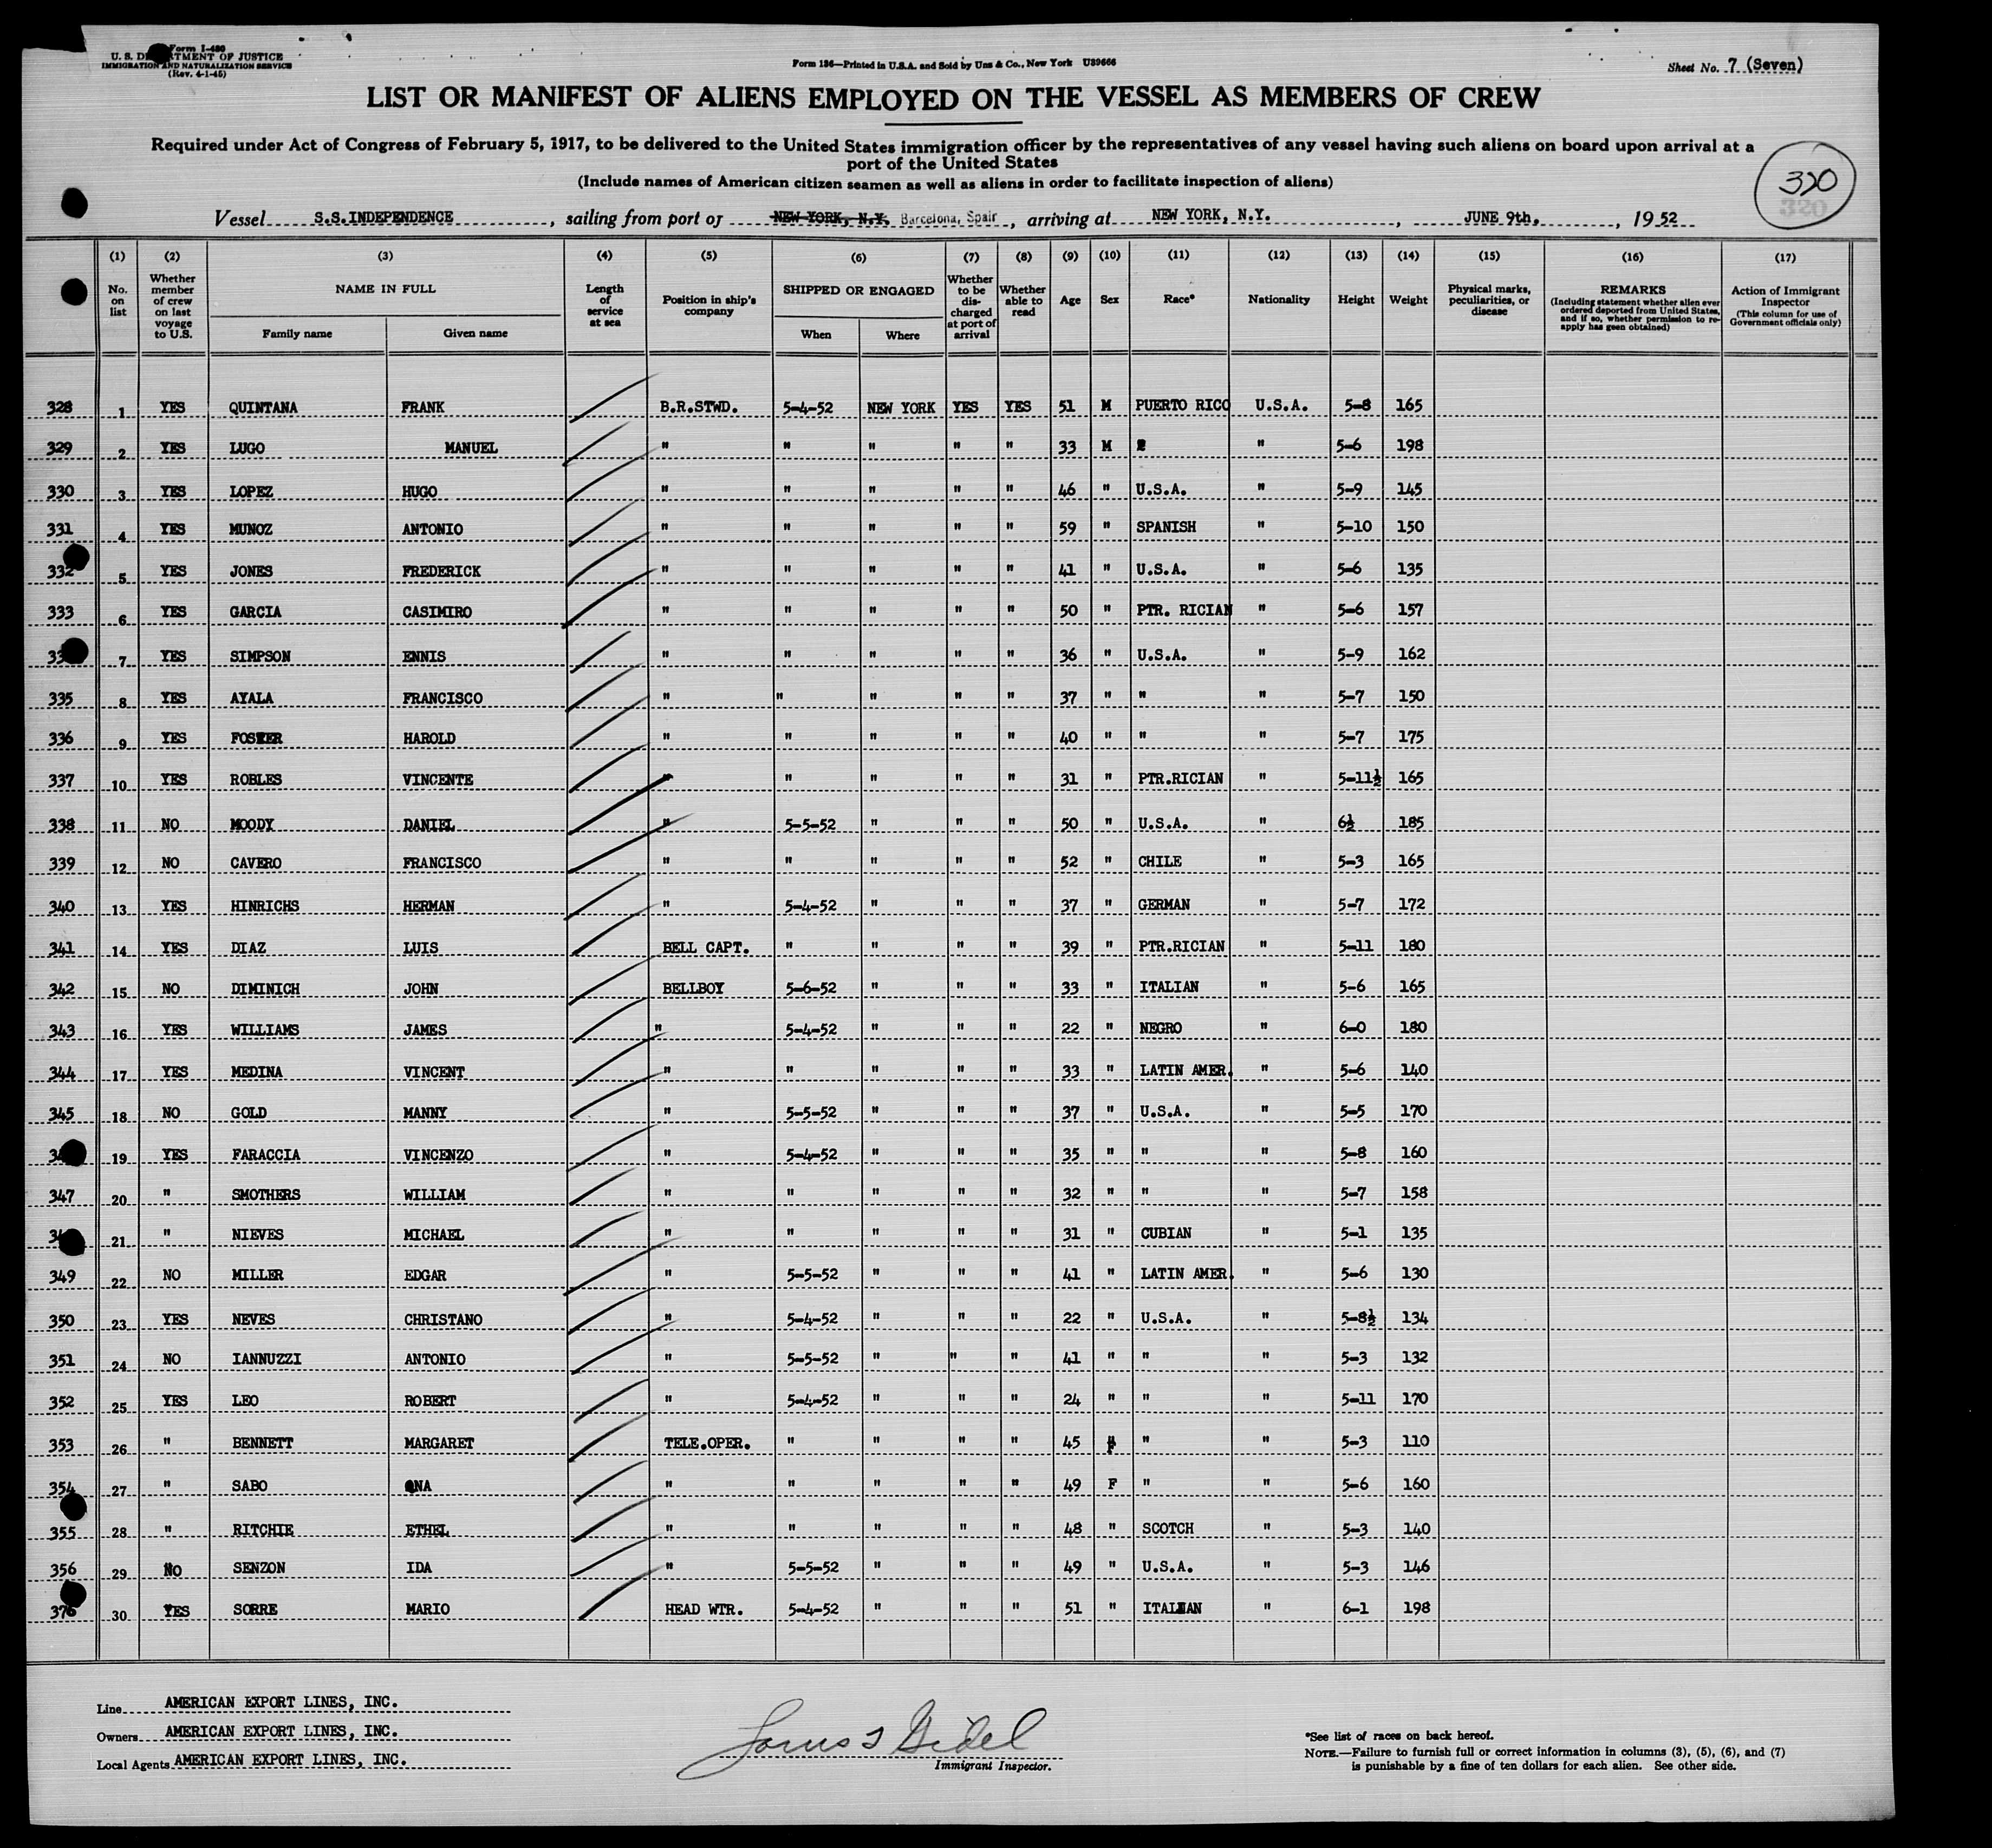 Form I-480
U. S. DEPARTMENT OF JUSTICE
IMMIGRATION AND NATURALIZATION SERVICE
(Rev. 4-1-45)
Form 136—Printed in U.S.A. and Sold by Unz & Co., New York U39666
Sheet No. 7 (Seven)
LIST OR MANIFEST OF ALIENS EMPLOYED ON THE VESSEL AS MEMBERS OF CREW
Required under Act of Congress of February 5, 1917, to be delivered to the United States immigration officer by the representatives of any vessel having such aliens on board upon arrival at a
port of the United States
(Include names of American citizen seamen as well as aliens in order to facilitate inspection of aliens)
320
320
Vessel S.S.INDEPENDENCE, sailing from port of NEW YORK, N.Y. Barcelona, Spain, arriving at NEW YORK, N.Y., JUNE 9th, 1952
(1) (2) (3) (4) (5) (6) (7) (8) (9) (10) (11) (12) (13) (14) (15) (16) (17)
No. on list
Whether member of crew on last voyage to U.S.
NAME IN FULL
Family name
Given name
Length of service at sea
Position in ship's company
SHIPPED OR ENGAGED
When
Where
Whether to be discharged at port of arrival
Whether able to read
Age
Sex
Race*
Nationality
Height
Weight
Physical marks, peculiarities, or disease
REMARKS
(Including statement whether alien ever ordered deported from United States, and if so, whether permission to re-apply has geen obtained)
Action of Immigrant Inspector
(This column for use of Government officials only)
328 1 YES QUINTANA FRANK B.R.STWD. 5-4-52 NEW YORK YES YES 51 M PUERTO RICO U.S.A. 5-8 165
329 2 YES LUGO MANUEL " " " " " 33 M " 5-6 198
330 3 YES LOPEZ HUGO " " " " " 46 " U.S.A. " 5-9 145
331 4 YES MUNOZ ANTONIO " " " " " 59 " SPANISH " 5-10 150
332 5 YES JONES FREDERICK " " " " " 41 " U.S.A. " 5-6 135
333 6 YES GARCIA CASIMIRO " " " " " 50 " PTR. RICIAN " 5-6 157
7 YES SIMPSON ENNIS " " " " " 36 " U.S.A. " 5-9 162
335 8 YES AYALA FRANCISCO " " " " " 37 " " " 5-7 150
336 9 YES FOSTER HAROLD " " " " " 40 " " " 5-7 175
337 10 YES ROBLES VINCENTE " " " " " 31 " PTR.RICIAN " 5-11½ 165
338 11 NO MOODY DANIEL " 5-5-52 " " " 50 " U.S.A. " 6½ 185
339 12 NO CAVERO FRANCISCO " " " " " 52 " CHILE " 5-3 165
340 13 YES HINRICHS HERMAN " 5-4-52 " " " 37 " GERMAN " 5-7 172
341 14 YES DIAZ LUIS BELL CAPT. " " " " 39 " PTR.RICIAN " 5-11 180
342 15 NO DIMINICH JOHN BELLBOY 5-6-52 " " " 33 " ITALIAN " 5-6 165
343 16 YES WILLIAMS JAMES " 5-4-52 " " " 22 " NEGRO " 6-0 180
344 17 YES MEDINA VINCENT " " " " " 33 " LATIN AMER. " 5-6 140
345 18 NO GOLD MANNY " 5-5-52 " " " 37 " U.S.A. " 5-5 170
19 YES FARACCIA VINCENZO " 5-4-52 " " " 35 " " " 5-8 160
347 20 " SMOTHERS WILLIAM " " " " " 32 " " " 5-7 158
21 " NIEVES MICHAEL " " " " " 31 " CUBIAN " 5-1 135
349 22 NO MILLER EDGAR " 5-5-52 " " " 41 " LATIN AMER. " 5-6 130
350 23 YES NEVES CHRISTANO " 5-4-52 " " " 22 " U.S.A. " 5-8½ 134
351 24 NO IANNUZZI ANTONIO " 5-5-52 " " " 41 " " " 5-3 132
352 25 YES LEO ROBERT " 5-4-52 " " " 24 " " " 5-11 170
353 26 " BENNETT MARGARET TELE.OPER. " " " " 45 F " " 5-3 110
354 27 " SABO ONA " " " " " 49 F " " 5-6 160
355 28 " RITCHIE ETHEL " " " " " 48 " SCOTCH " 5-3 140
356 29 NO SENZON IDA " 5-5-52 " " " 49 " U.S.A. " 5-3 146
376 30 YES SORRE MARIO HEAD WTR. 5-4-52 " " " 51 " ITALIAN " 6-1 198
Line AMERICAN EXPORT LINES, INC.
Owners AMERICAN EXPORT LINES, INC.
Local Agents AMERICAN EXPORT LINES, INC.
Immigrant Inspector.
*See list of races on back hereof.
NOTE.—Failure to furnish full or correct information in columns (3), (5), (6), and (7)
is punishable by a fine of ten dollars for each alien. See other side.